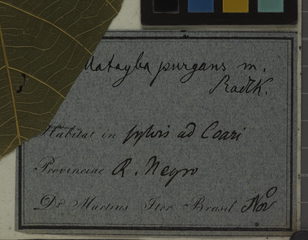 Matayba purgans m.
Radlk.
Habitat in sylvis ad Coari
Provinciae R. Negro
Dr. Martius Iter Brasil Nov